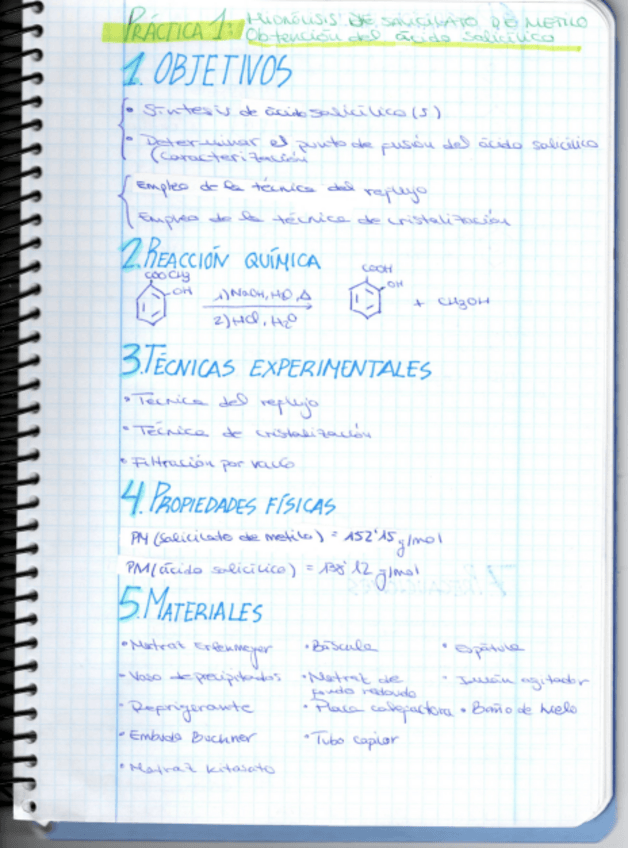 PRÁCTICA 1: HIDRÓLISIS DE SALICILATO DE METILO
Obtención del ácido salicílico
1. OBJETIVOS
• Síntesis de ácido salicílico (s)
• Determinar el punto de fusión del ácido salicílico
(caracterización
Empleo de la técnica del reflujo
Empleo de la técnica de cristalización
2. REACCIÓN QUÍMICA
COOCH3
OH
1) NaOH, H2O, Δ
2) HCl, H2O
COOH
OH
+ CH3OH
3. TÉCNICAS EXPERIMENTALES
• Técnica del reflujo
• Técnica de cristalización
• Filtración por vacío
4. PROPIEDADES FÍSICAS
PM (salicilato de metilo) = 152'15 g/mol
PM (ácido salicílico) = 138'12 g/mol
5. MATERIALES
• Matraz Erlenmeyer • Báscula • Espátula
• Vaso de precipitados • Matraz de fondo redondo • Imán agitador
• Refrigerante • Placa calefactora • Baño de hielo
• Embudo Buchner • Tubo capilar
• Matraz kitasato